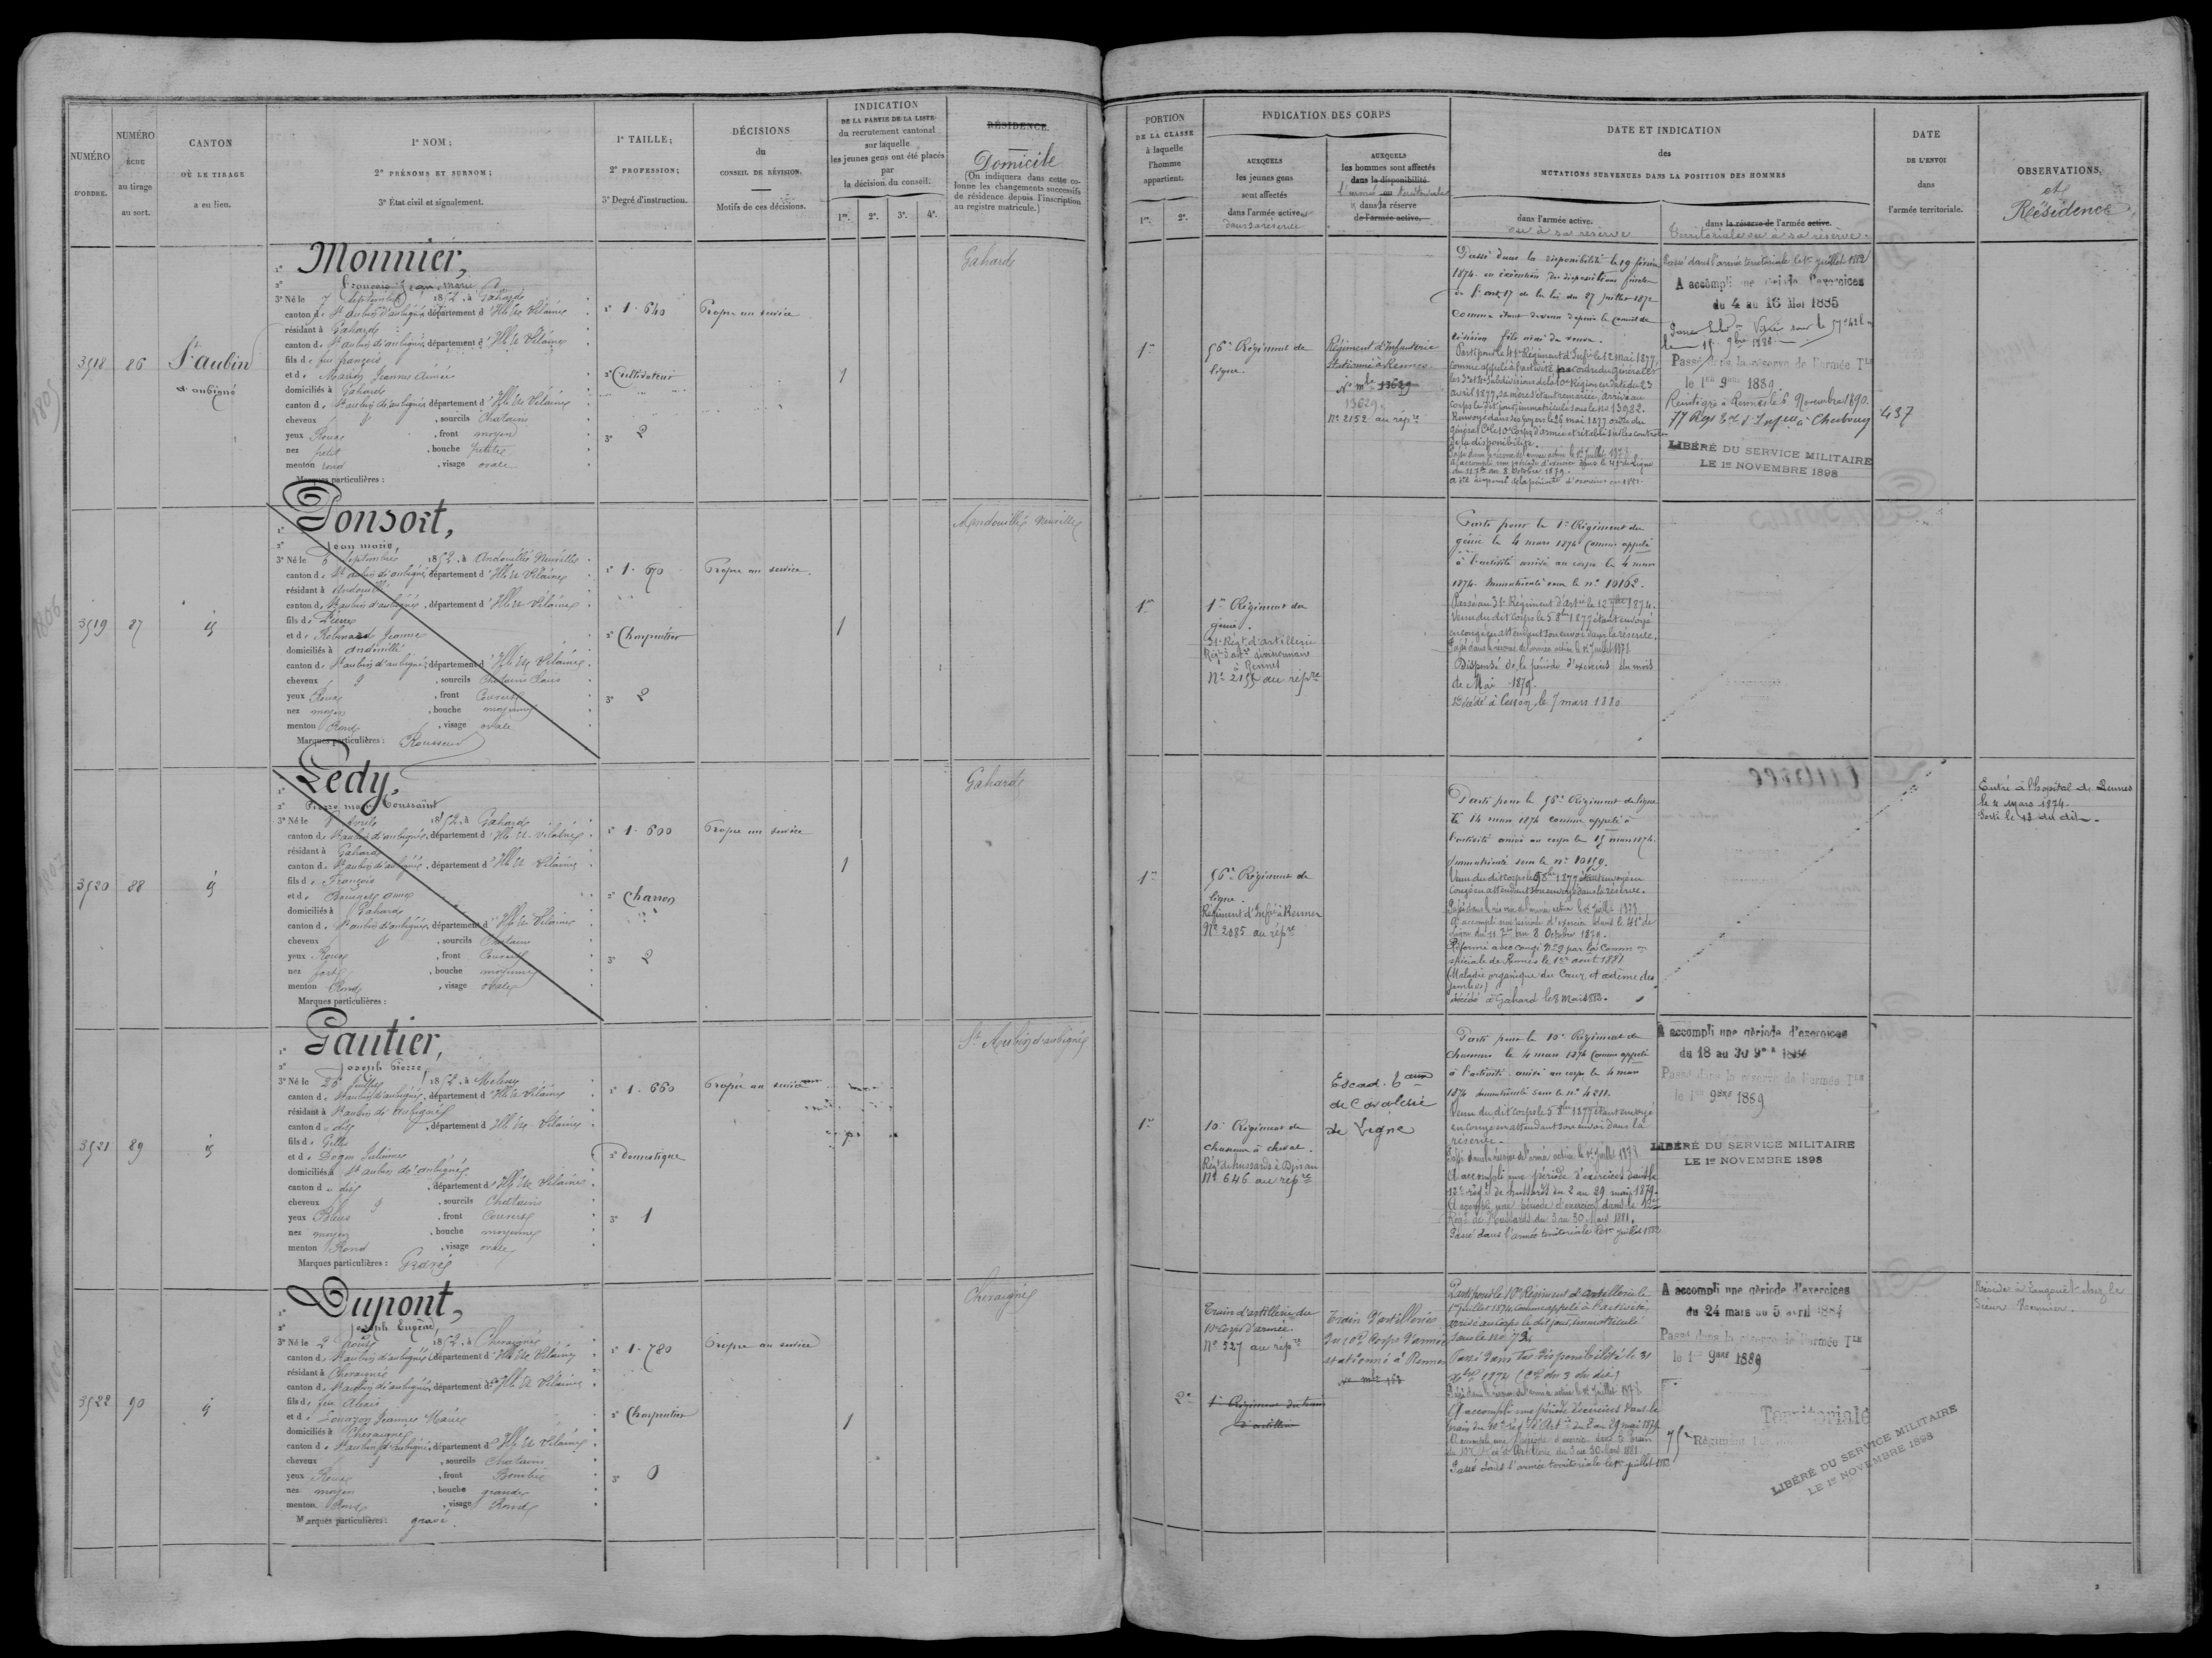 NUMÉRO
D'ORDRE.
NUMÉRO
ÉCHU
au tirage
au sort.
CANTON
OÙ LE TIRAGE
a eu lieu.
1° NOM ;
2° PRÉNOMS ET SURNOM ;
3° État civil et signalement.
1° TAILLE ;
2° PROFESSION ;
3° Degré d'instruction.
DÉCISIONS
du
CONSEIL DE RÉVISION.
Motifs de ces décisions.
INDICATION
DE LA PARTIE DE LA LISTE
du recrutement cantonal
sur laquelle
les jeunes gens ont été placés
par
la décision du conseil.
1re. 2e. 3e. 4e.
RÉSIDENCE.
Domicile
(On indiquera dans cette co-
lonne les changements successifs
de résidence depuis l'inscription
au registre matricule.)
3518
86
St aubin
d'aubigné
1° Monnier,
2° François Jean Marie
3° Né le 7 Septembre 1852, à Gahard
canton de St aubin d'aubigné département d'Ille et Vilaine
résidant à Gahard
canton de St aubin d'aubigné département d'Ille et Vilaine
fils de feu françois
et de Jeanne Aimée
domiciliés à Gahard
canton de St aubin d'aubigné département d'Ille et Vilaine
cheveux , sourcils Chatains
yeux Roux , front moyen
nez petit , bouche petite
menton rond , visage ovale
Marques particulières :
1° 1.640
2° Cultivateur
3° 2
Propre au service
1
Gahard
3519
87
id
1° Ponsort,
2° Jean marie
3° Né le 5 Septembre 1852, à Andouillé Neuville
canton de St aubin d'aubigné département d'Ille et Vilaine
résidant à Andouillé
canton de St aubin d'aubigné, département d'Ille et Vilaine
fils de Pierre
et de Jeanne
domiciliés à Andouillé
canton de St aubin d'aubigné département d'Ille et Vilaine
cheveux , sourcils Chatains Clairs
yeux Roux , front Couvert
nez moyen , bouche moyenne
menton Rond , visage ovale
Marques particulières : Rousseur
1° 1.670
2° Charpentier
3° 2
Propre au service.
1
Andouillé Neuville
3520
88
id
1° Ledy,
2° Pierre marie Toussaint
3° Né le 1852, à Gahard
canton de St aubin d'aubigné, département d'Ille et Vilaine
résidant à Gahard
canton de St aubin d'aubigné, département d'Ille et Vilaine
fils de François
et de anne
domiciliés à Gahard
canton de St aubin d'aubigné, département d'Ille et Vilaine
cheveux , sourcils Chatains
yeux Roux , front Couvert
nez fort , bouche moyenne
menton Rond , visage ovale
Marques particulières :
1° 1.600
2° Charron
3° 2
Propre au service
1
Gahard
3521
89
id
1° Gautier,
2° Joseph Pierre
3° Né le 25 Juillet 1852, à Melesse
canton de St aubin d'aubigné, département d'Ille et Vilaine
résidant à St aubin d'aubigné
canton du dit , département d'Ille et Vilaine
fils de Gilles
et de Julienne
domiciliés à St aubin d'aubigné
canton du dit , département d'Ille et Vilaine
cheveux , sourcils Chatains
yeux Bleus , front Couvert
nez moyen , bouche moyenne
menton Rond , visage ovale
Marques particulières : Gravé
1° 1.660
2° Domestique
3° 1
Propre au service
St Aubin d'aubigné
3522
90
id
1° Dupont,
2° Joseph Eugène,
3° Né le 2 Août 1852, à Chevaigné
canton de St aubin d'aubigné département d'Ille et Vilaine
résidant à Chevaigné
canton de St aubin d'aubigné département d'Ille et Vilaine
fils de feu Alexis
et de Jeanne Marie
domiciliés à Chevaigné
canton de St aubin d'aubigné, département d'Ille et Vilaine
cheveux , sourcils Chatains
yeux Roux , front Bombé
nez moyen , bouche grande
menton Rond , visage Rond
Marques particulières : gravé.
1° 1.780
2° Charpentier
3° 0
Propre au service
1
Chevaigné
PORTION
DE LA CLASSE
à laquelle
l'homme
appartient.
1re. 2e.
INDICATION DES CORPS
AUXQUELS
les jeunes gens
sont affectés
dans l'armée active
dans sa réserve
AUXQUELS
les hommes sont affectés
dans la disponibilité
l'armée territoriale
dans la réserve
de l'armée active.
DATE ET INDICATION
des
MUTATIONS SURVENUES DANS LA POSITION DES HOMMES
dans l'armée active.
ou à sa réserve
dans la réserve de l'armée active.
territoriale ou à sa réserve.
DATE
DE L'ENVOI
dans
l'armée territoriale.
OBSERVATIONS,
et
Résidence
1re
56e Régiment de
ligne.
Régiment d'Infanterie
stationné à Rennes
No mle 13629
13629.
No 2152 au répre
Passé dans la disponibilité le 19 février
1874. en exécution des dispositions
de l'art. 17 de la loi du 27 juillet 1872
comme étant devenu depuis le conseil de
révision fils ainé de veuve.
Parti pour le 41e Régiment d'Infrie le 12 mai 1877.
comme appelé à l'activité par ordre du Général
les 3e et 4e Subdivisions de la 10e Région en date du 23
avril 1877, sa mère s'étant remariée, arrivé au
corps le dit jour, immatriculé sous le no 13982.
Renvoyé dans ses foyers le 26 mai 1877 ordre du
Général Ct le 10e Corps d'armée et rétabli sur les contrôles
de la disponibilité.
Passé dans la réserve de l'armée active le 1er Juillet 1878
A accompli une période d'exercices dans le 41e de Ligne
du 11 7bre au 8 Octobre 1879.
A été dispensé de la période d'exercices en 1881.
Passé dans l'armée territoriale le 1er juillet 1882
A accompli une période d'exercices
du 4 au 16 Mai 1885
Passé dans la réserve de l'armée Tle
le 1er 9bre 1889
Réintégré à Rennes le 6 Novembre 1890.
77 Régt Trl d'Infrie à Cherbourg
LIBÉRÉ DU SERVICE MILITAIRE
LE 1er NOVEMBRE 1898
437
1re
1er Régiment du
génie.
31e Régt d'artillerie
Régt d'artie divisionnaire
à Rennes
No 2155 au répre
Parti pour le 1er Régiment du
génie le 4 mars 1874 comme appelé
à l'activité arrivé au corps le 4 mars
1874. Immatriculé sous le no 10162.
Passé au 31e Régiment d'artrie le 12 1874.
Venu du dit Corps le 5 8bre 1877 étant envoyé
en congé en attendant son envoi dans la réserve.
Passé dans la réserve de l'armée active le 1er Juillet 1878
Dispensé de la période d'exercices du mois
de Mai 1879.
Décédé à Cesson, le 7 mars 1880
1re
56e Régiment de
ligne.
Régiment d'Infie à Rennes
No 2085 au répre
Parti pour le 56e Régiment de ligne
le 14 mars 1874 comme appelé à
l'activité arrivé au corps le 15 mars 1874.
Immatriculé sous le no 10159.
Venu du dit corps le 5 8bre 1877 étant envoyé en
Congé en attendant son envoi dans la réserve.
Passé dans la réserve de l'armée active le 1er Juillet 1878.
A accompli une période d'exercices dans le 41e de
Ligne du 11 7bre au 8 Octobre 1879.
Réformé avec congé No 2 par la Comm on
spéciale de Rennes le 1er août 1881
(Maladie organique du Cœur et œdème des
jambes)
Décédé à Gahard le 8 Mai 1882.
Entré à l'hopital de Rennes
le 4 Mars 1874.
Sorti le 12 du dit.
1re
10e Régiment de
Chasseurs à cheval.
Régt de hussards à Dinan
No 646 au répre
Escad. taux
de Cavalerie
de Légne
Parti pour le 10e Régiment de
Chasseurs le 4 mars 1874 comme appelé
à l'activité, arrivé au corps le 4 mars
1874 immatriculé sous le no 4211.
Venu du dit corps le 5 8bre 1877 étant envoyé
en congé en attendant son envoi dans la
réserve.
Passé dans la réserve de l'armée active le 1er Juillet 1878
A accompli une période d'exercices dans le
12e régt de hussards du 2 au 29 mai 1879.
A accompli une période d'exercices dans le 12e
Régt de Hussards du 3 au 30 Mars 1881.
Passé dans l'armée territoriale le 1er juillet 1882
A accompli une période d'exercices
du 18 au 30 9bre
Passé dans la réserve de l'armée Tle
le 1er 9bre 1889
LIBÉRÉ DU SERVICE MILITAIRE
LE 1er NOVEMBRE 1898
2e
Train d'artillerie du
10e Corps d'armée.
No 527 au répre
1er Régiment du train
d'artillerie
Train d'artillerie
du 10e Corps d'armée
stationné à Rennes
No mle 763
Parti pour le 10e Régiment d'artillerie le
1er juillet 1874 comme appelé à l'activité,
arrivé au corps le dit jour, immatriculé
sous le no 72.
Passé dans la disponibilité le 31
1874
Passé dans la réserve de l'armée active le 1er Juillet 1878
A accompli une période d'exercices dans le
train du 10e régt d'Artie du 2 au 29 mai 1879.
A accompli une période d'exercices dans le train
du 10e Régt d'Artillerie du 3 au 30 Mars 1881.
Passé dans l'armée territoriale le 1er juillet 1882
A accompli une période d'exercices
du 24 mars au 5 avril 1884
Passé dans la réserve de l'armée Tle
le 1er 9bre 1889
Territoriale
75e Régiment
LIBÉRÉ DU SERVICE MILITAIRE
LE 1er NOVEMBRE 1898
Réside à Langouët chez le
Sieur Monnier.